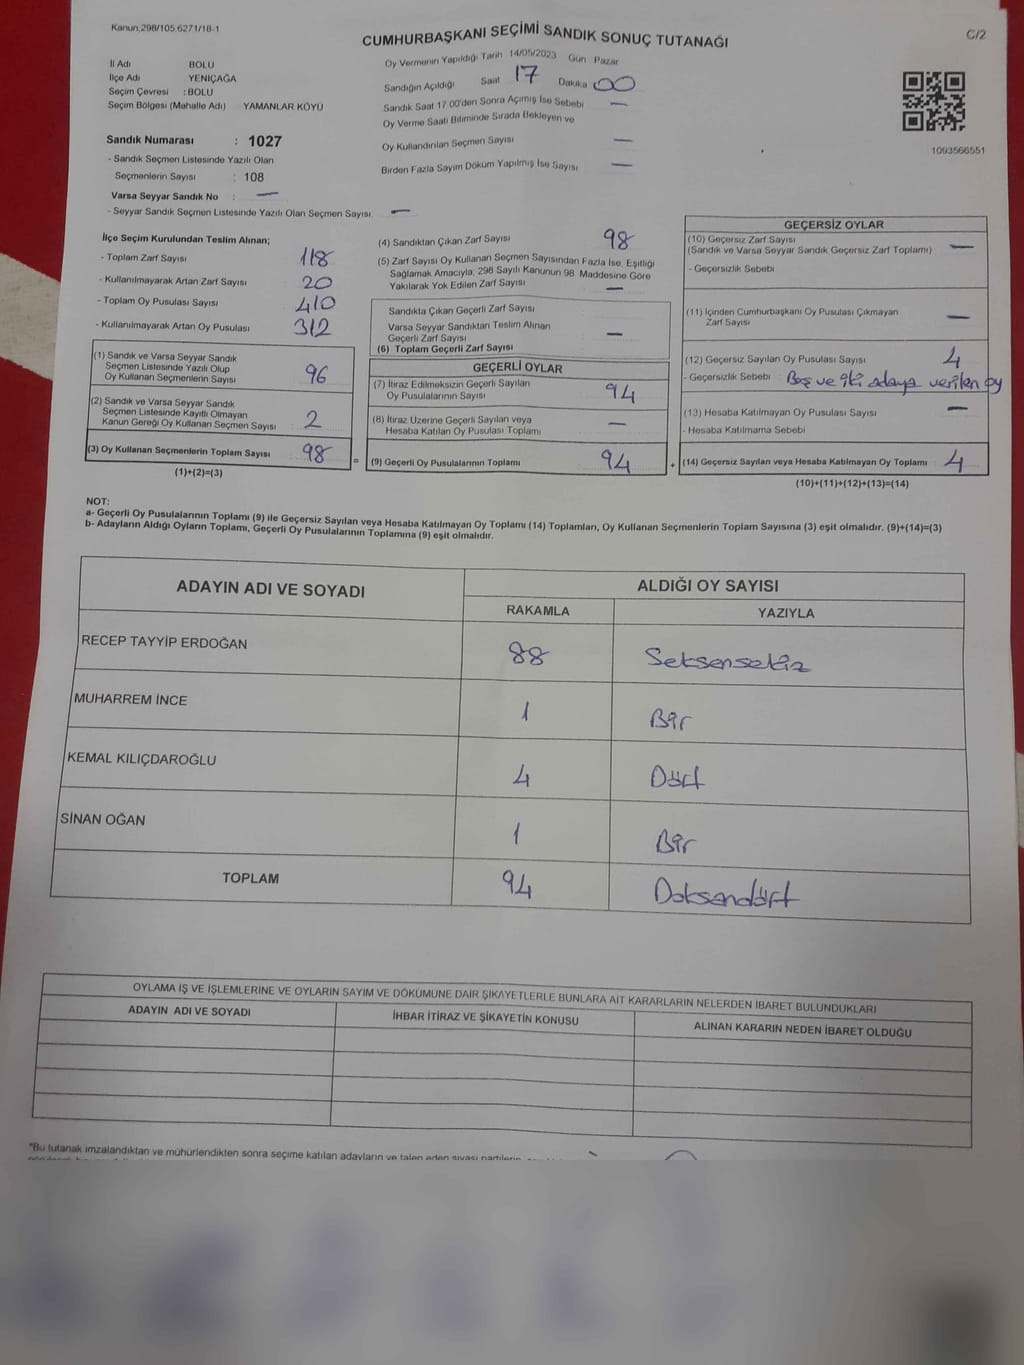 Kanun,298/105,6271/18-1
CUMHURBAŞKANI SEÇİMİ SANDIK SONUÇ TUTANAĞI
C/2
İl Adı BOLU
İlçe Adı YENİÇAĞA
Seçim Çevresi : BOLU
Seçim Bölgesi (Mahalle Adı) YAMANLAR KÖYÜ
Oy Vermenin Yapıldığı Tarih 14/05/2023 Gün Pazar
Sandığın Açıldığı Saat 17 Dakika 00
Sandık Saat 17 00'den Sonra Açımış İse Sebebi —
Oy Verme Saati Bitiminde Sırada Bekleyen ve
Oy Kullandırılan Seçmen Sayısı —
Birden Fazla Sayım Döküm Yapılmış İse Sayısı —
1093566551
Sandık Numarası : 1027
- Sandık Seçmen Listesinde Yazılı Olan
Seçmenlerin Sayısı : 108
Varsa Seyyar Sandık No : —
- Seyyar Sandık Seçmen Listesinde Yazılı Olan Seçmen Sayısı: —
İlçe Seçim Kurulundan Teslim Alınan;
- Toplam Zarf Sayısı 118
- Kullanılmayarak Artan Zarf Sayısı 20
- Toplam Oy Pusulası Sayısı 410
- Kullanılmayarak Artan Oy Pusulası 312
(1) Sandık ve Varsa Seyyar Sandık
Seçmen Listesinde Yazılı Olup
Oy Kullanan Seçmenlerin Sayısı 96
(2) Sandık ve Varsa Seyyar Sandık
Seçmen Listesinde Kayıtlı Olmayan
Kanun Gereği Oy Kullanan Seçmen Sayısı 2
(3) Oy Kullanan Seçmenlerin Toplam Sayısı 98
(1)+(2)=(3)
(4) Sandıktan Çıkan Zarf Sayısı 98
(5) Zarf Sayısı Oy Kullanan Seçmen Sayısından Fazla İse, Eşitliği
Sağlamak Amacıyla, 298 Sayılı Kanunun 98 Maddesine Göre
Yakılarak Yok Edilen Zarf Sayısı —
Sandıkta Çıkan Geçerli Zarf Sayısı
Varsa Seyyar Sandıktan Teslim Alınan
Geçerli Zarf Sayısı —
(6) Toplam Geçerli Zarf Sayısı
GEÇERLİ OYLAR
(7) İtiraz Edilmeksizin Geçerli Sayılan
Oy Pusulalarının Sayısı 94
(8) İtiraz Üzerine Geçerli Sayılan veya
Hesaba Katılan Oy Pusulası Toplamı —
= (9) Geçerli Oy Pusulalarının Toplamı 94
GEÇERSİZ OYLAR
(10) Geçersiz Zarf Sayısı
(Sandık ve Varsa Seyyar Sandık Geçersiz Zarf Toplamı) —
- Geçersizlik Sebebi
(11) İçinden Cumhurbaşkanı Oy Pusulası Çıkmayan
Zarf Sayısı —
(12) Geçersiz Sayılan Oy Pusulası Sayısı 4
- Geçersizlik Sebebi : Boş ve iki adaya verilen oy
(13) Hesaba Katılmayan Oy Pusulası Sayısı —
- Hesaba Katılmama Sebebi
+ (14) Geçersiz Sayılan veya Hesaba Katılmayan Oy Toplamı 4
(10)+(11)+(12)+(13)=(14)
NOT:
a- Geçerli Oy Pusulalarının Toplamı (9) ile Geçersiz Sayılan veya Hesaba Katılmayan Oy Toplamı (14) Toplamları, Oy Kullanan Seçmenlerin Toplam Sayısına (3) eşit olmalıdır. (9)+(14)=(3)
b- Adayların Aldığı Oyların Toplamı, Geçerli Oy Pusulalarının Toplamına (9) eşit olmalıdır.
ADAYIN ADI VE SOYADI
ALDIĞI OY SAYISI
RAKAMLA YAZIYLA
RECEP TAYYİP ERDOĞAN 88 Seksensekiz
MUHARREM İNCE 1 Bir
KEMAL KILIÇDAROĞLU 4 Dört
SİNAN OĞAN 1 Bir
TOPLAM 94 Doksandört
OYLAMA İŞ VE İŞLEMLERİNE VE OYLARIN SAYIM VE DÖKÜMÜNE DAİR ŞİKAYETLERLE BUNLARA AİT KARARLARIN NELERDEN İBARET BULUNDUKLARI
ADAYIN ADI VE SOYADI
İHBAR İTİRAZ VE ŞİKAYETİN KONUSU
ALINAN KARARIN NEDEN İBARET OLDUĞU
*Bu tutanak imzalandıktan ve mühürlendikten sonra seçime katılan adayların ve talep eden siyasi partilerin